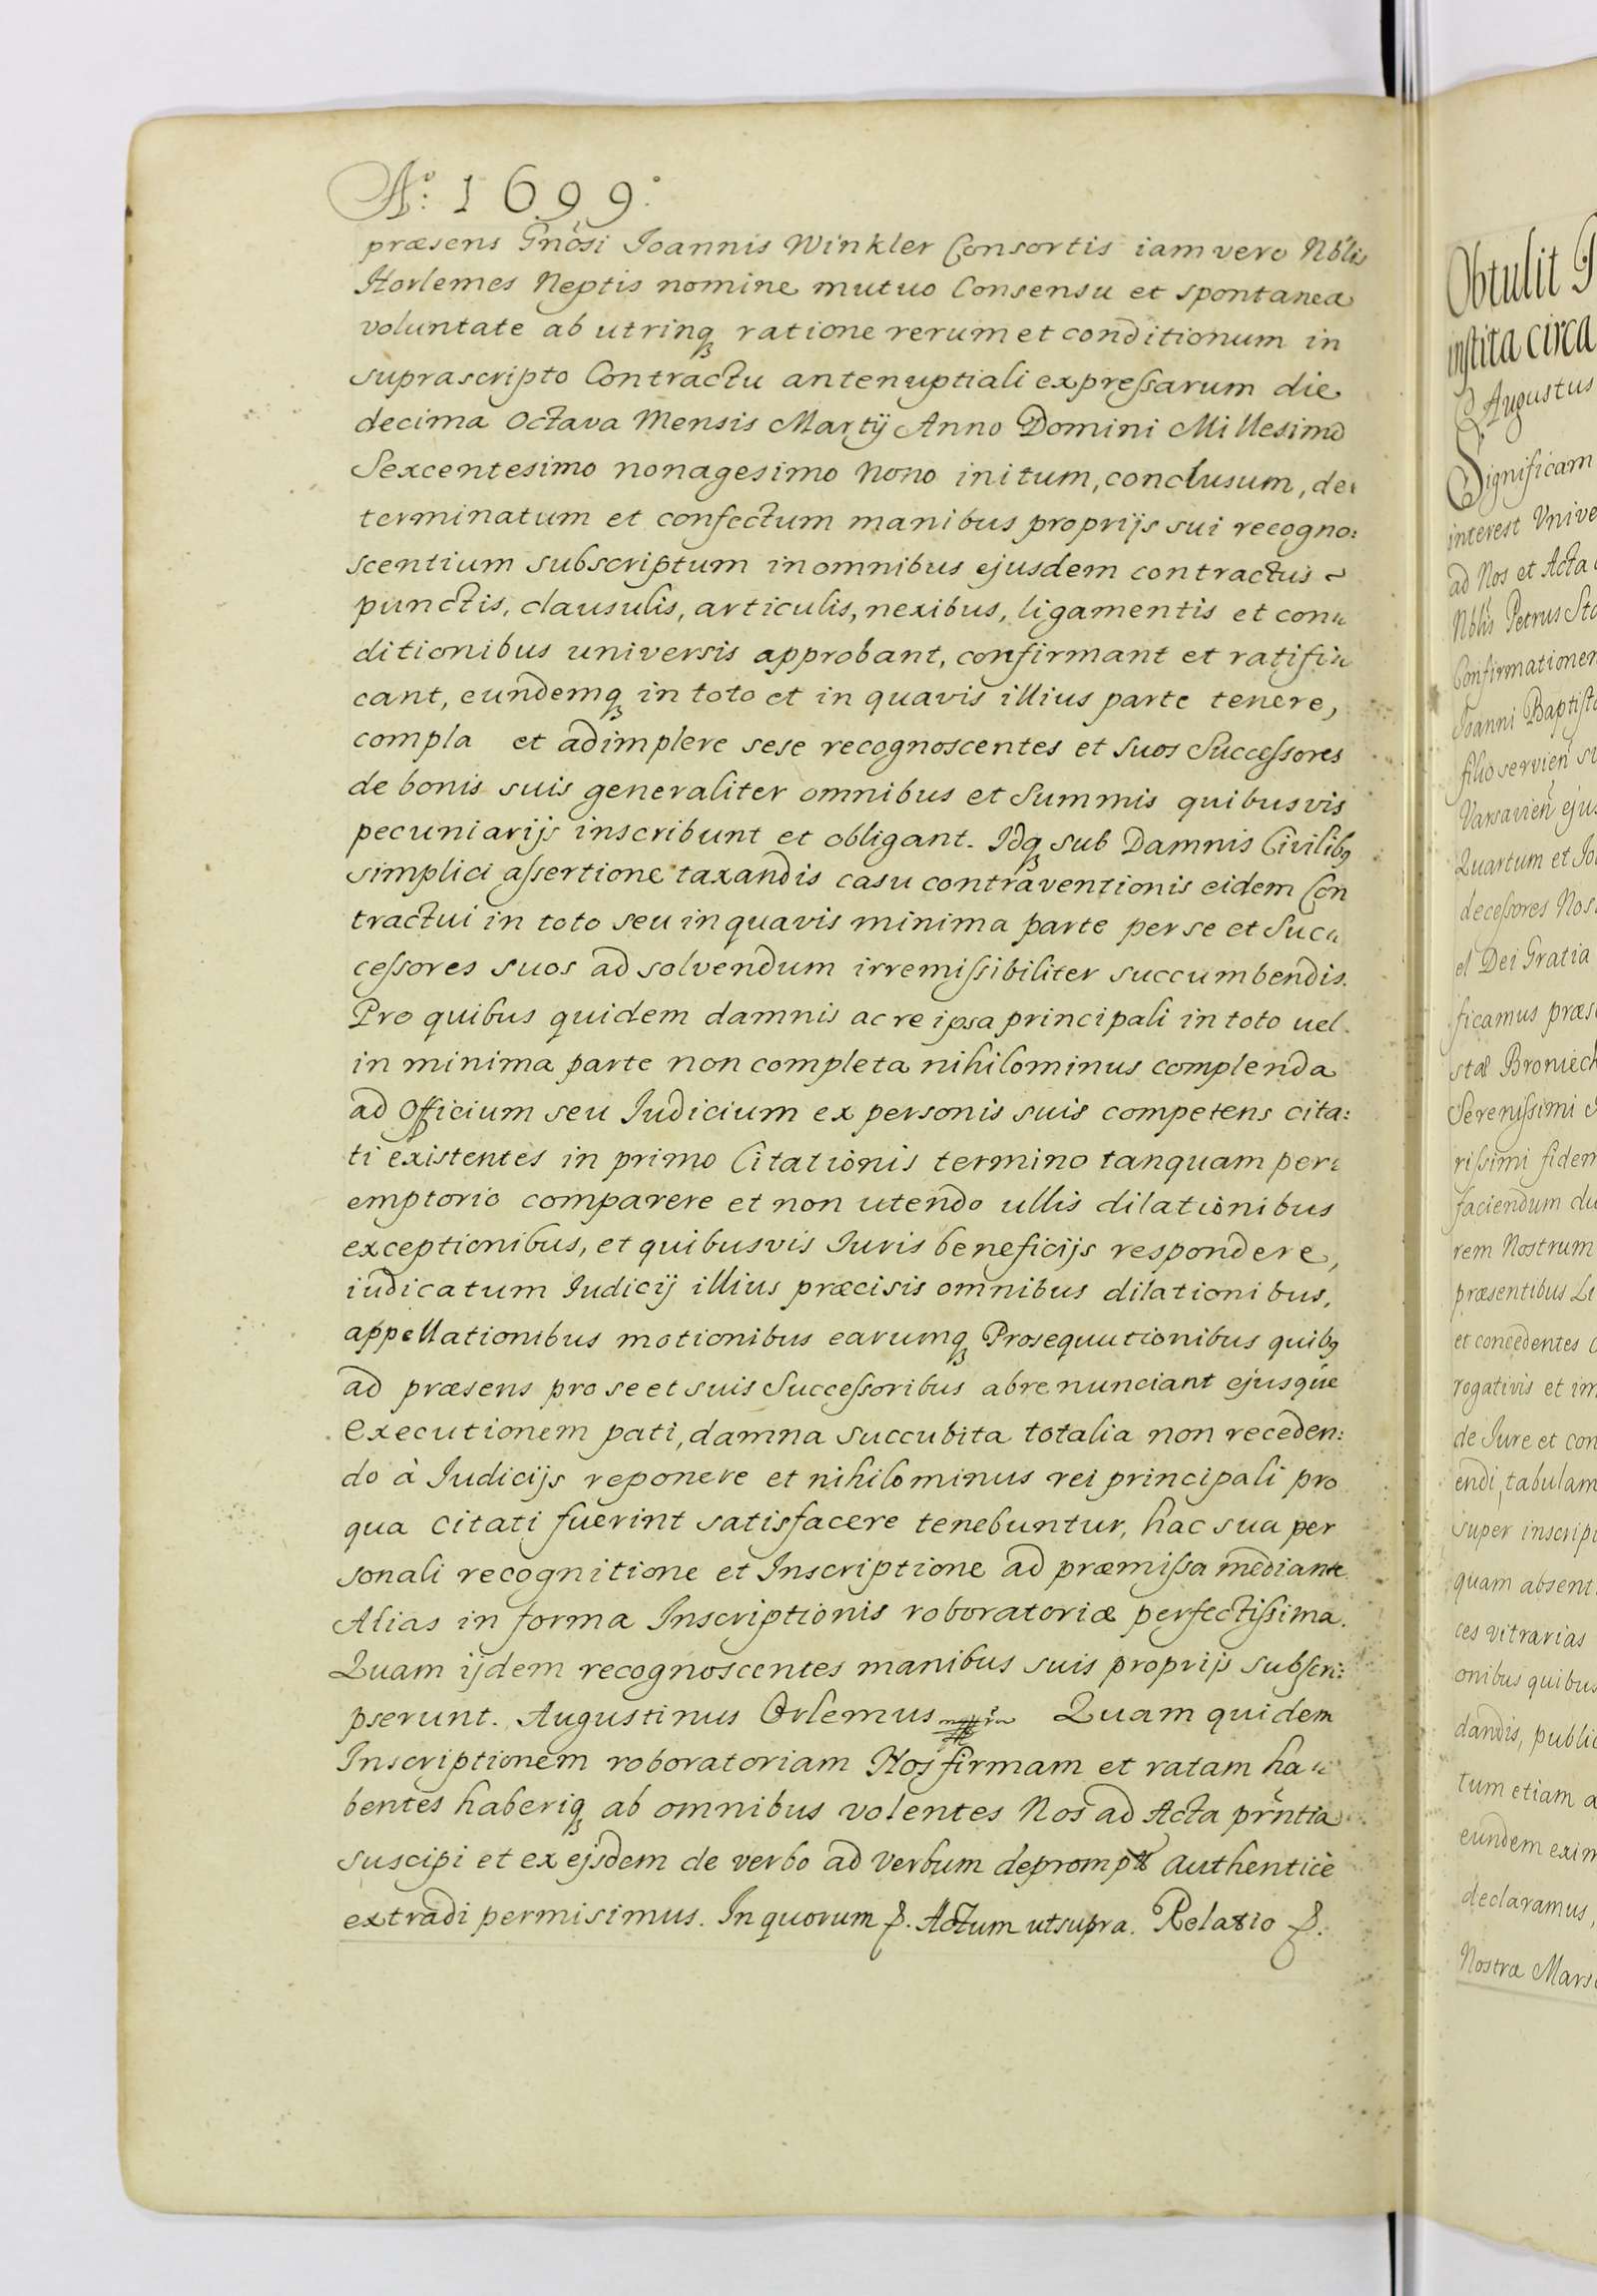 Aº: 1699º:
præsens Gnõsi Joannis Winkler Consortis iam vero Nblis
Horlemes Neptis nomine mutuo Consensu et spontanea
voluntate ab utrinq₃ ratione rerum et conditionum in
suprascripto Contractu antenuptiali expressarum die
decima Octava Mensis Martij Anno Domini Millesimo
Sexcentesimo nonagesimo Nono initum, conclusum, de:
terminatum et confectum manibus proprijs sui recogno:
scentium subscriptum in omnibus ejusdem contractus ~
punctis, clausulis, articulis, nexibus, ligamentis et con:
ditionibus universis approbant, confirmant et ratifi:
cant, eundemq₃ in toto et in quavis illius parte tenere,
compla et adimplere sese recognoscentes et suos Successores
de bonis suis generaliter omnibus et Summis quibusvis
pecuniarijs inscribunt et obligant. Idq₃ sub Damnis Civilibꝰ
simplici assertione taxandis casu contraventionis eidem Con
tractui in toto seu in quavis minima parte per se et Suc:
cessores suos ad solvendum irremissibiliter succumbendis.
Pro quibus quidem damnis ac re ipsa principali in toto uel
in minima parte non completa nihilominus complenda
ad Officium seu Iudicium ex personis suis competens cita:
ti existentes in primo Citationis termino tanquam per:
emptorio comparere et non utendo ullis dilationibus
exceptionibus, et quibusvis Iuris beneficijs respondere,
iudicatum Iudicij illius præcisis omnibus dilationibus,
appellationibus motionibus earumq₃ Prosequutionibus quibꝰ
ad præsens pro se et suis Successoribus abrenunciant ejusque
executionem pati, damna succubita totalia non receden:
do à Iudicijs reponere et nihilominus rei principali pro
qua citati fuerint satisfacere tenebuntur, hac sua per
sonali recognitione et Inscriptione ad præmissa mediante.
Alias in forma Inscriptionis roboratoriæ perfectissima.
Quam ijdem recognoscentes manibus suis proprijs subscri:
pserunt. Augustinus Orlemus Quam quidem
Inscriptionem roboratoriam Nos firmam et ratam ha:
bentes haberiq₃ ab omnibus volentes Nos ad Acta prñtia
suscipi et ex ejsdem de verbo ad Verbum deprompt authenticè
extradi permisimus. In quorum p. Actum ut supra. Relatio p.
Obtulit
instita circa
Augustus
Significam
interest Unive
ad Nos et Acta
Nblis Petrus Sto
Confirmationem
Joanni Baptista
filio servien su
Varsavien ejus
Quartum et Jo
decessores Nos
el Dei Gratia
ficamus præs
stæ Broniech
Serenissimi
rissimi fidem
faciendum du
rem Nostrum
præsentibus Li
et concedentes
rogativis et im
de Jure et con
endi, tabulam
super inscrip
quam absent
ces vitrarias
onibus quibus
dandis, public
tum etiam a
eundem exim
declaramus,
Nostræ Mars